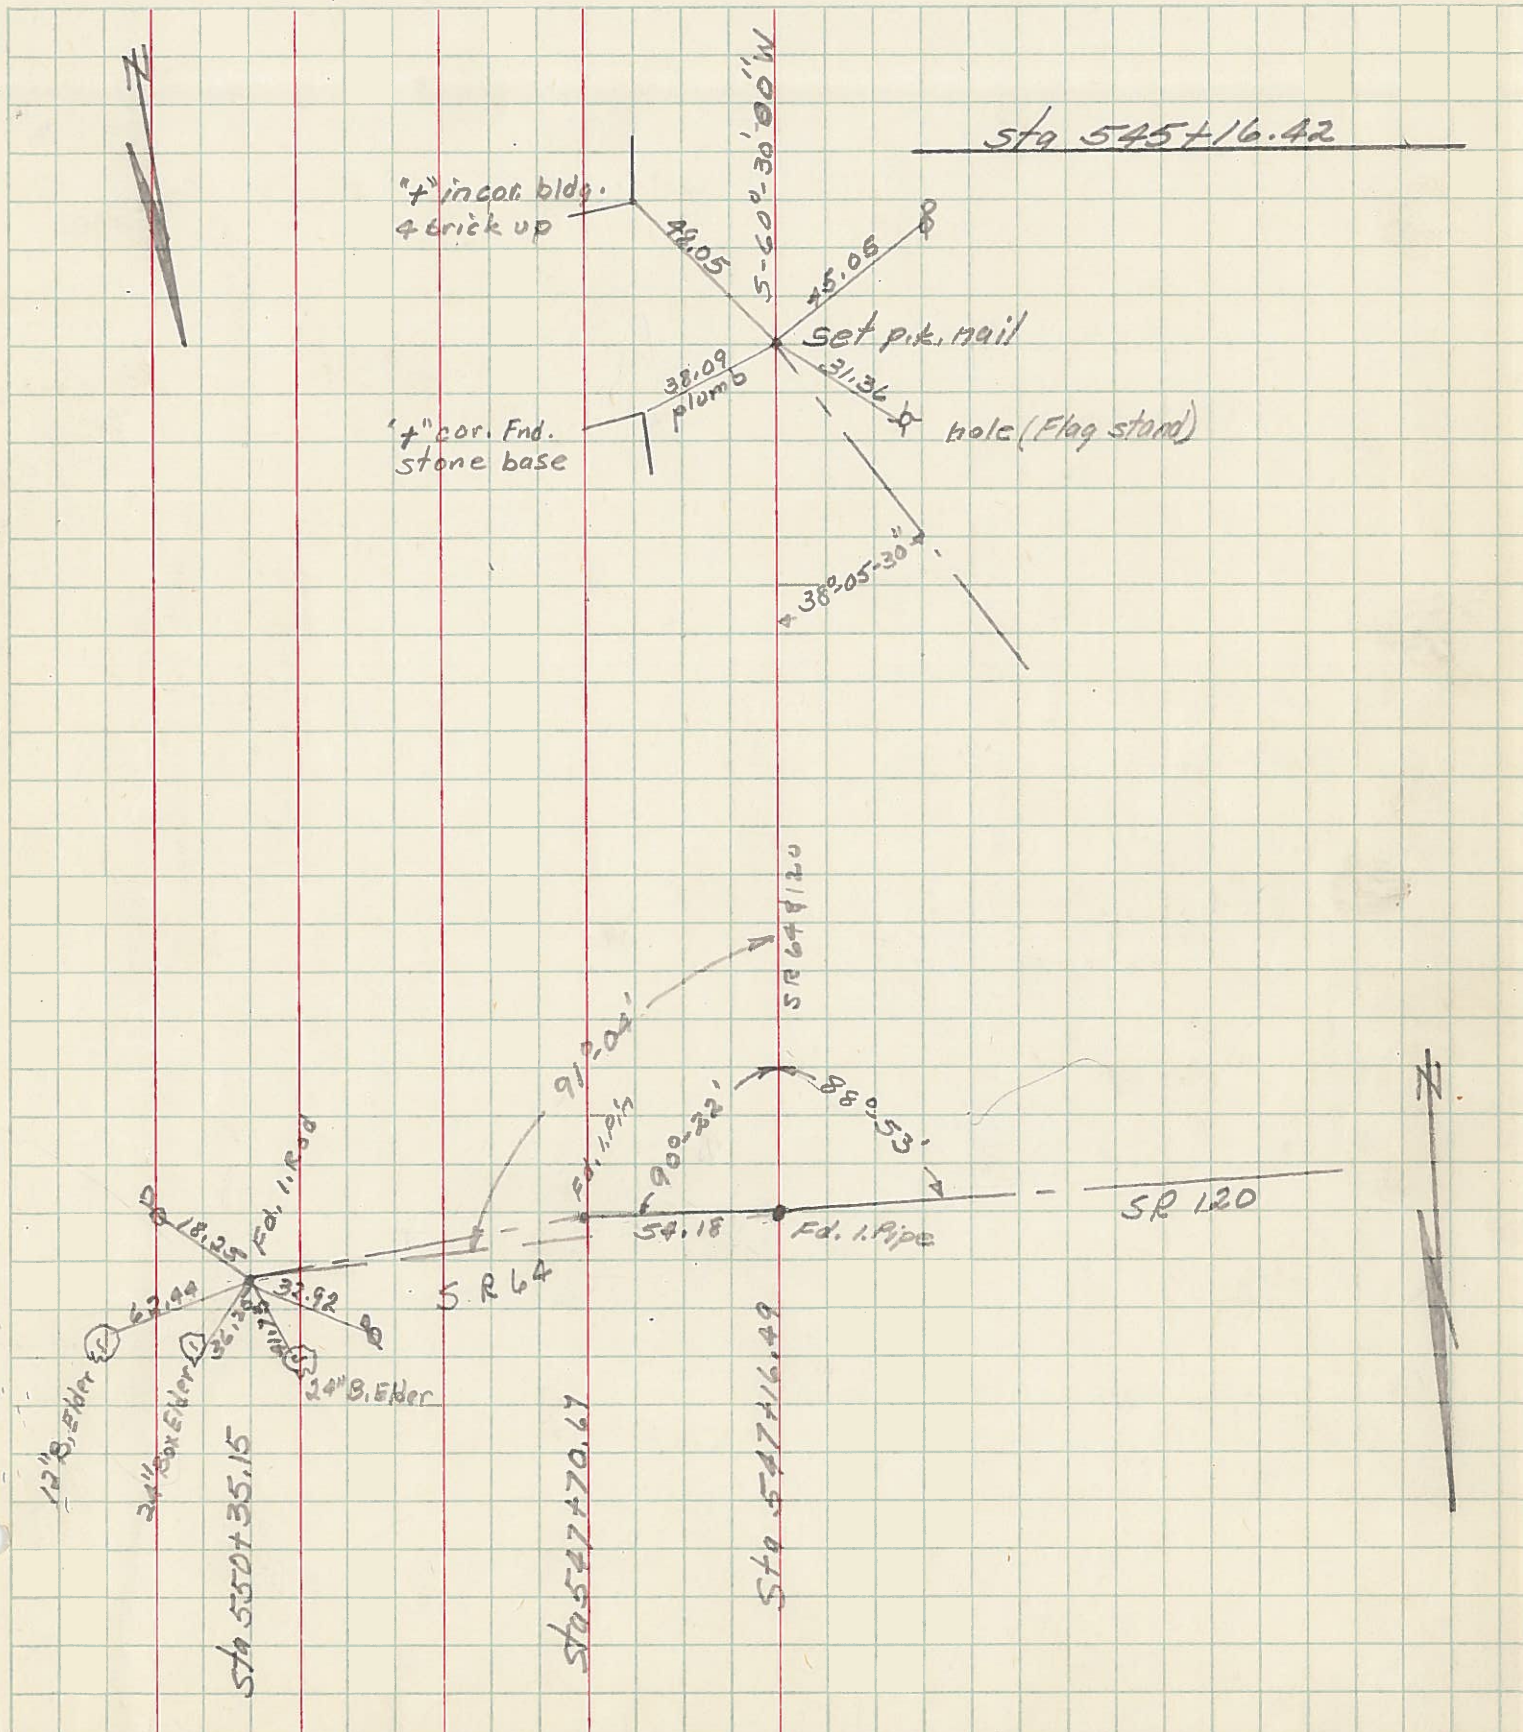 N
sta 545+16.42
S-60°-30'-00"W
"+" in cor. bldg.
4 brick up
48.05
45.05
set p.k. nail
38.09
plumb
31.36
hole (Flag stand)
"+" cor. Fnd.
stone base
38°-05-30"
SR 64 & 120
91°-04'
90°-32'
88°-53'
N
Fd. I. Rod
Fd. I. Pin
SR 120
18.25
54.18
Fd. I. Pipe
62.44
32.92
SR 64
36.20
12" B. Elder
24" Box Elder
24" B. Elder
sta 550+35.15
sta 547+70.67
sta 547+16.49